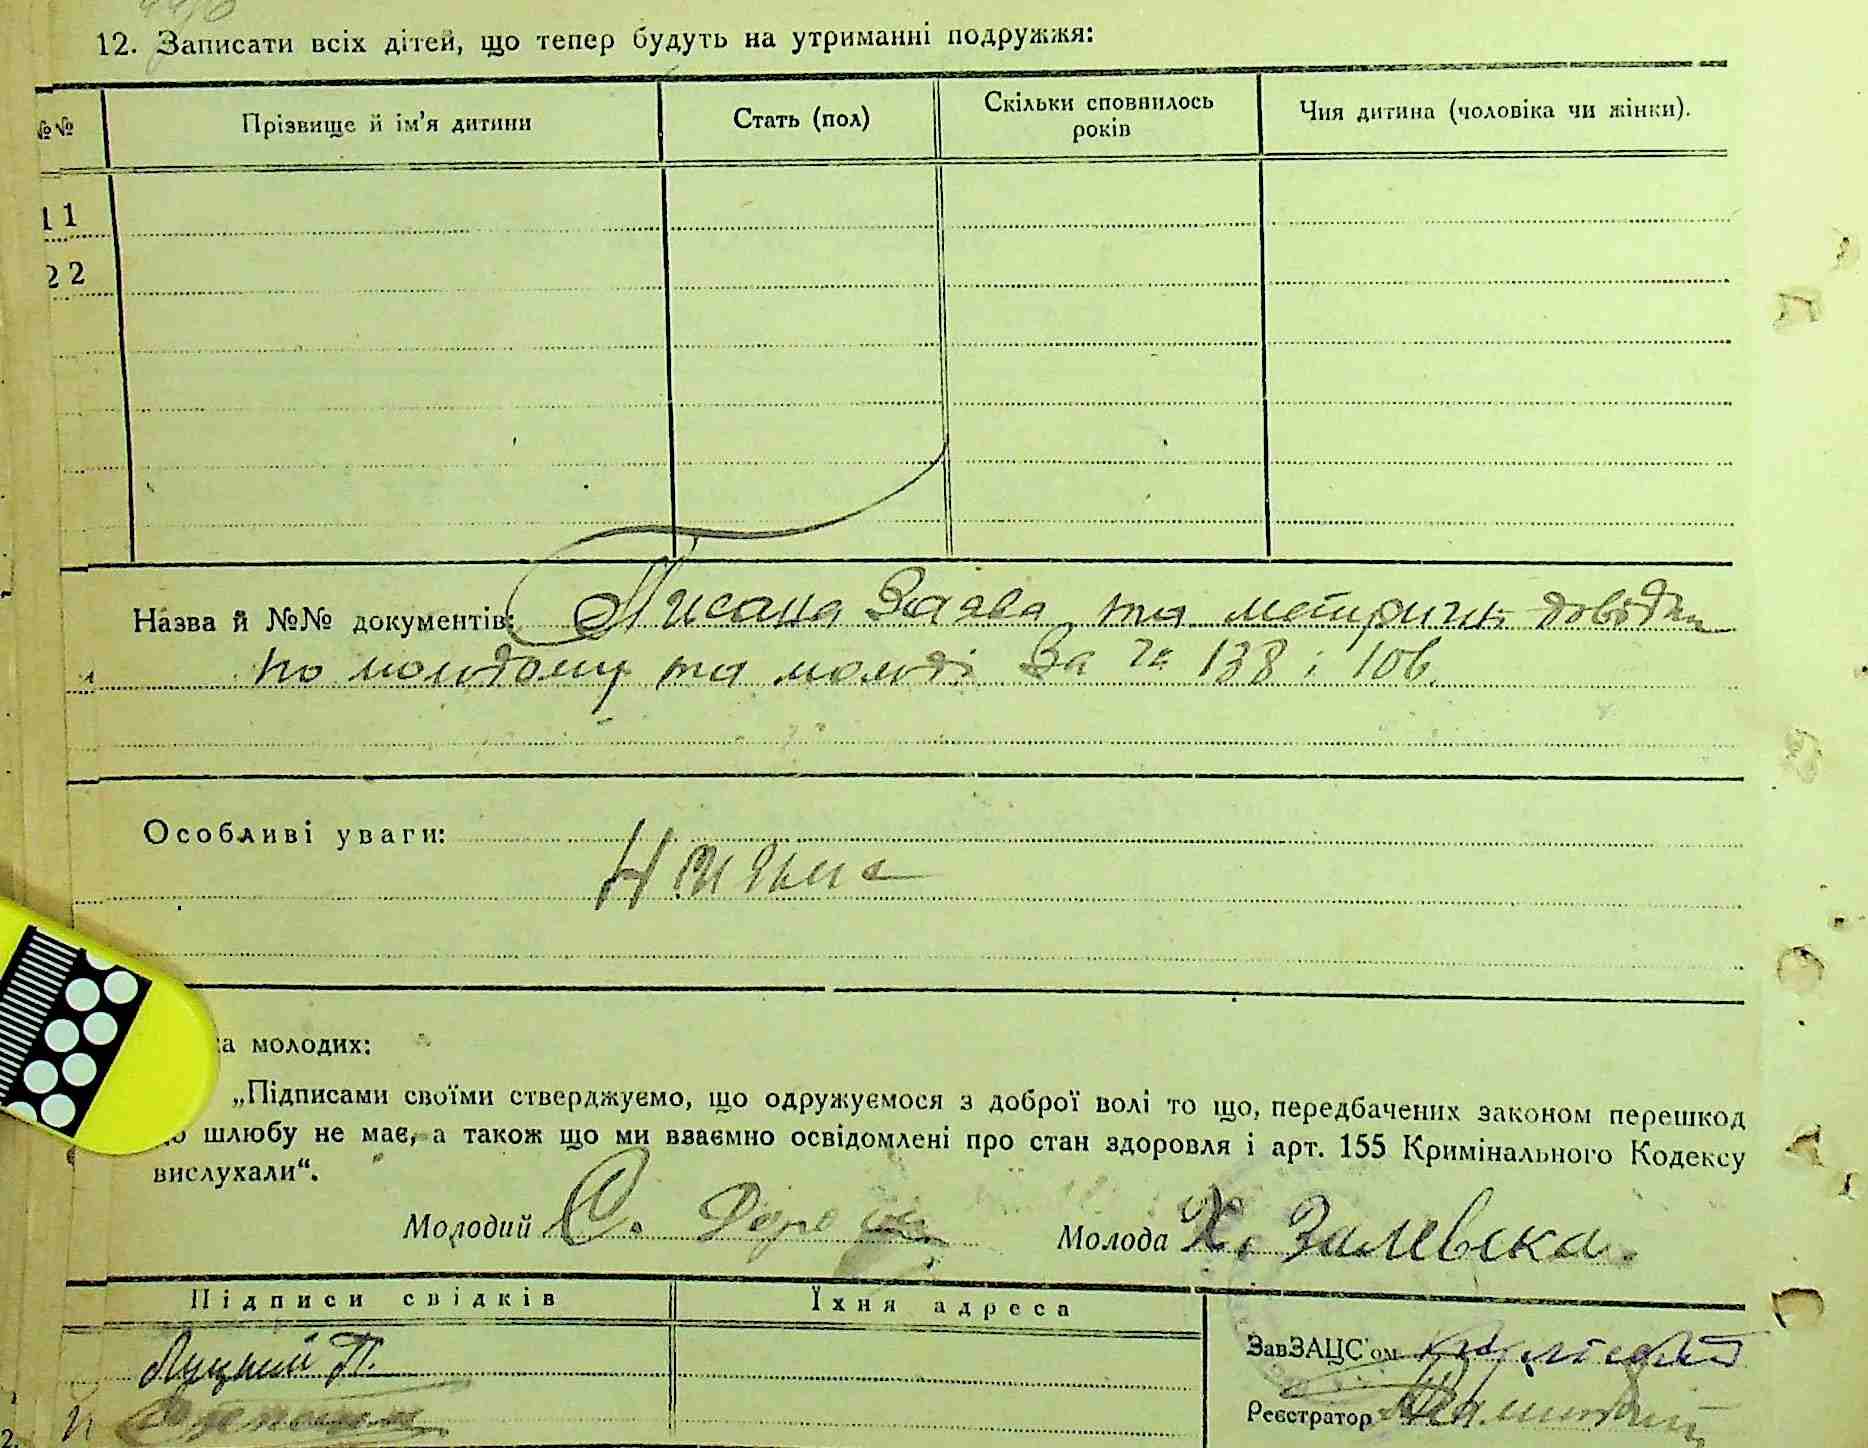 12. Записати всіх дітей, що тепер будуть на утриманні подружжя:
№№
Прізвище й ім'я дитини
Стать (пол)
Скільки сповнилось
років
Чия дитина (чоловіка чи жінки).
1 1
2 2
Назва й №№ документів: Писана Заява та метричні довідки
по молодому та молоді За № 138 і 106.
Особливі уваги:
Немає
ка молодих:
„Підписами своїми стверджуємо, що одружуємося з доброї волі то що, передбачених законом перешкод
до шлюбу не має, а також що ми взаємно освідомлені про стан здоровля і арт. 155 Кримінального Кодексу
вислухали“.
Молодий С. Молода Х. Залевска.
Підписи свідків
Їхня адреса
Луцкий П.
ЗавЗАЦС'ом
Реєстратор
2.